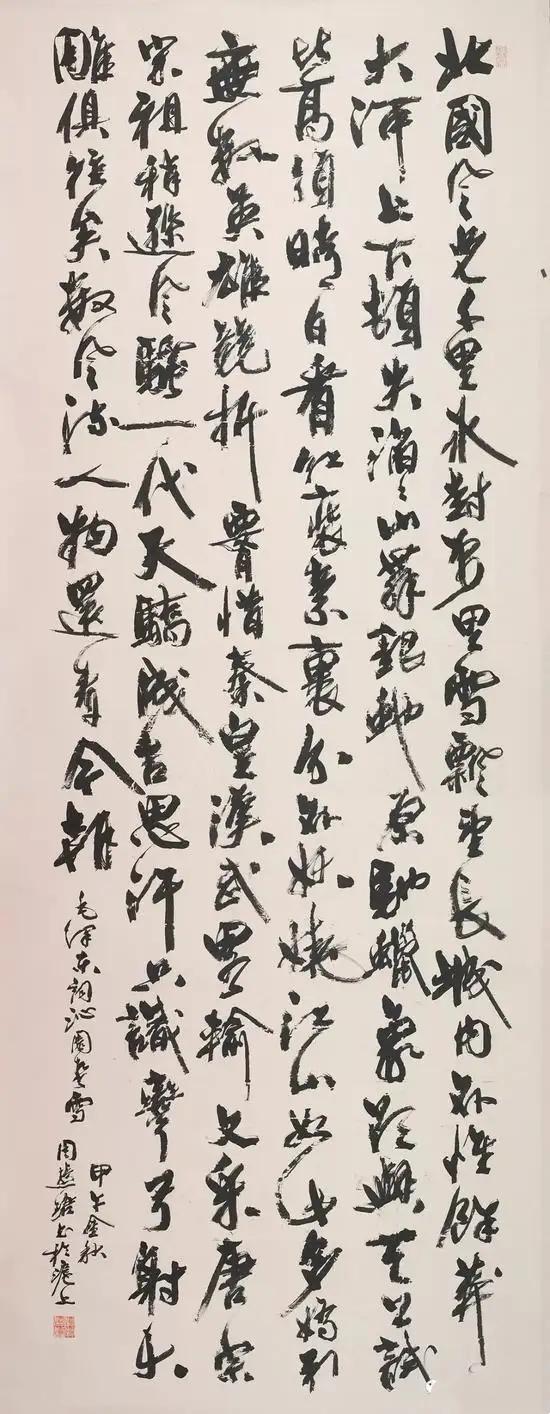 北國風光千里冰封萬里雪飄望長城內外惟餘莽
大河上下頓失滔〻山舞銀蛇原馳蠟象欲與天公試
比高須晴日看紅裝素裹分外妖嬈江山如此多嬌引
無數英雄競折腰惜秦皇漢武略輸文采唐宗
宋祖稍遜風騷一代天驕成吉思汗只識彎弓射大
雕俱往矣數風流人物還看今朝
毛澤東詞沁園春雪
甲午金秋
周慧珺書於滬上